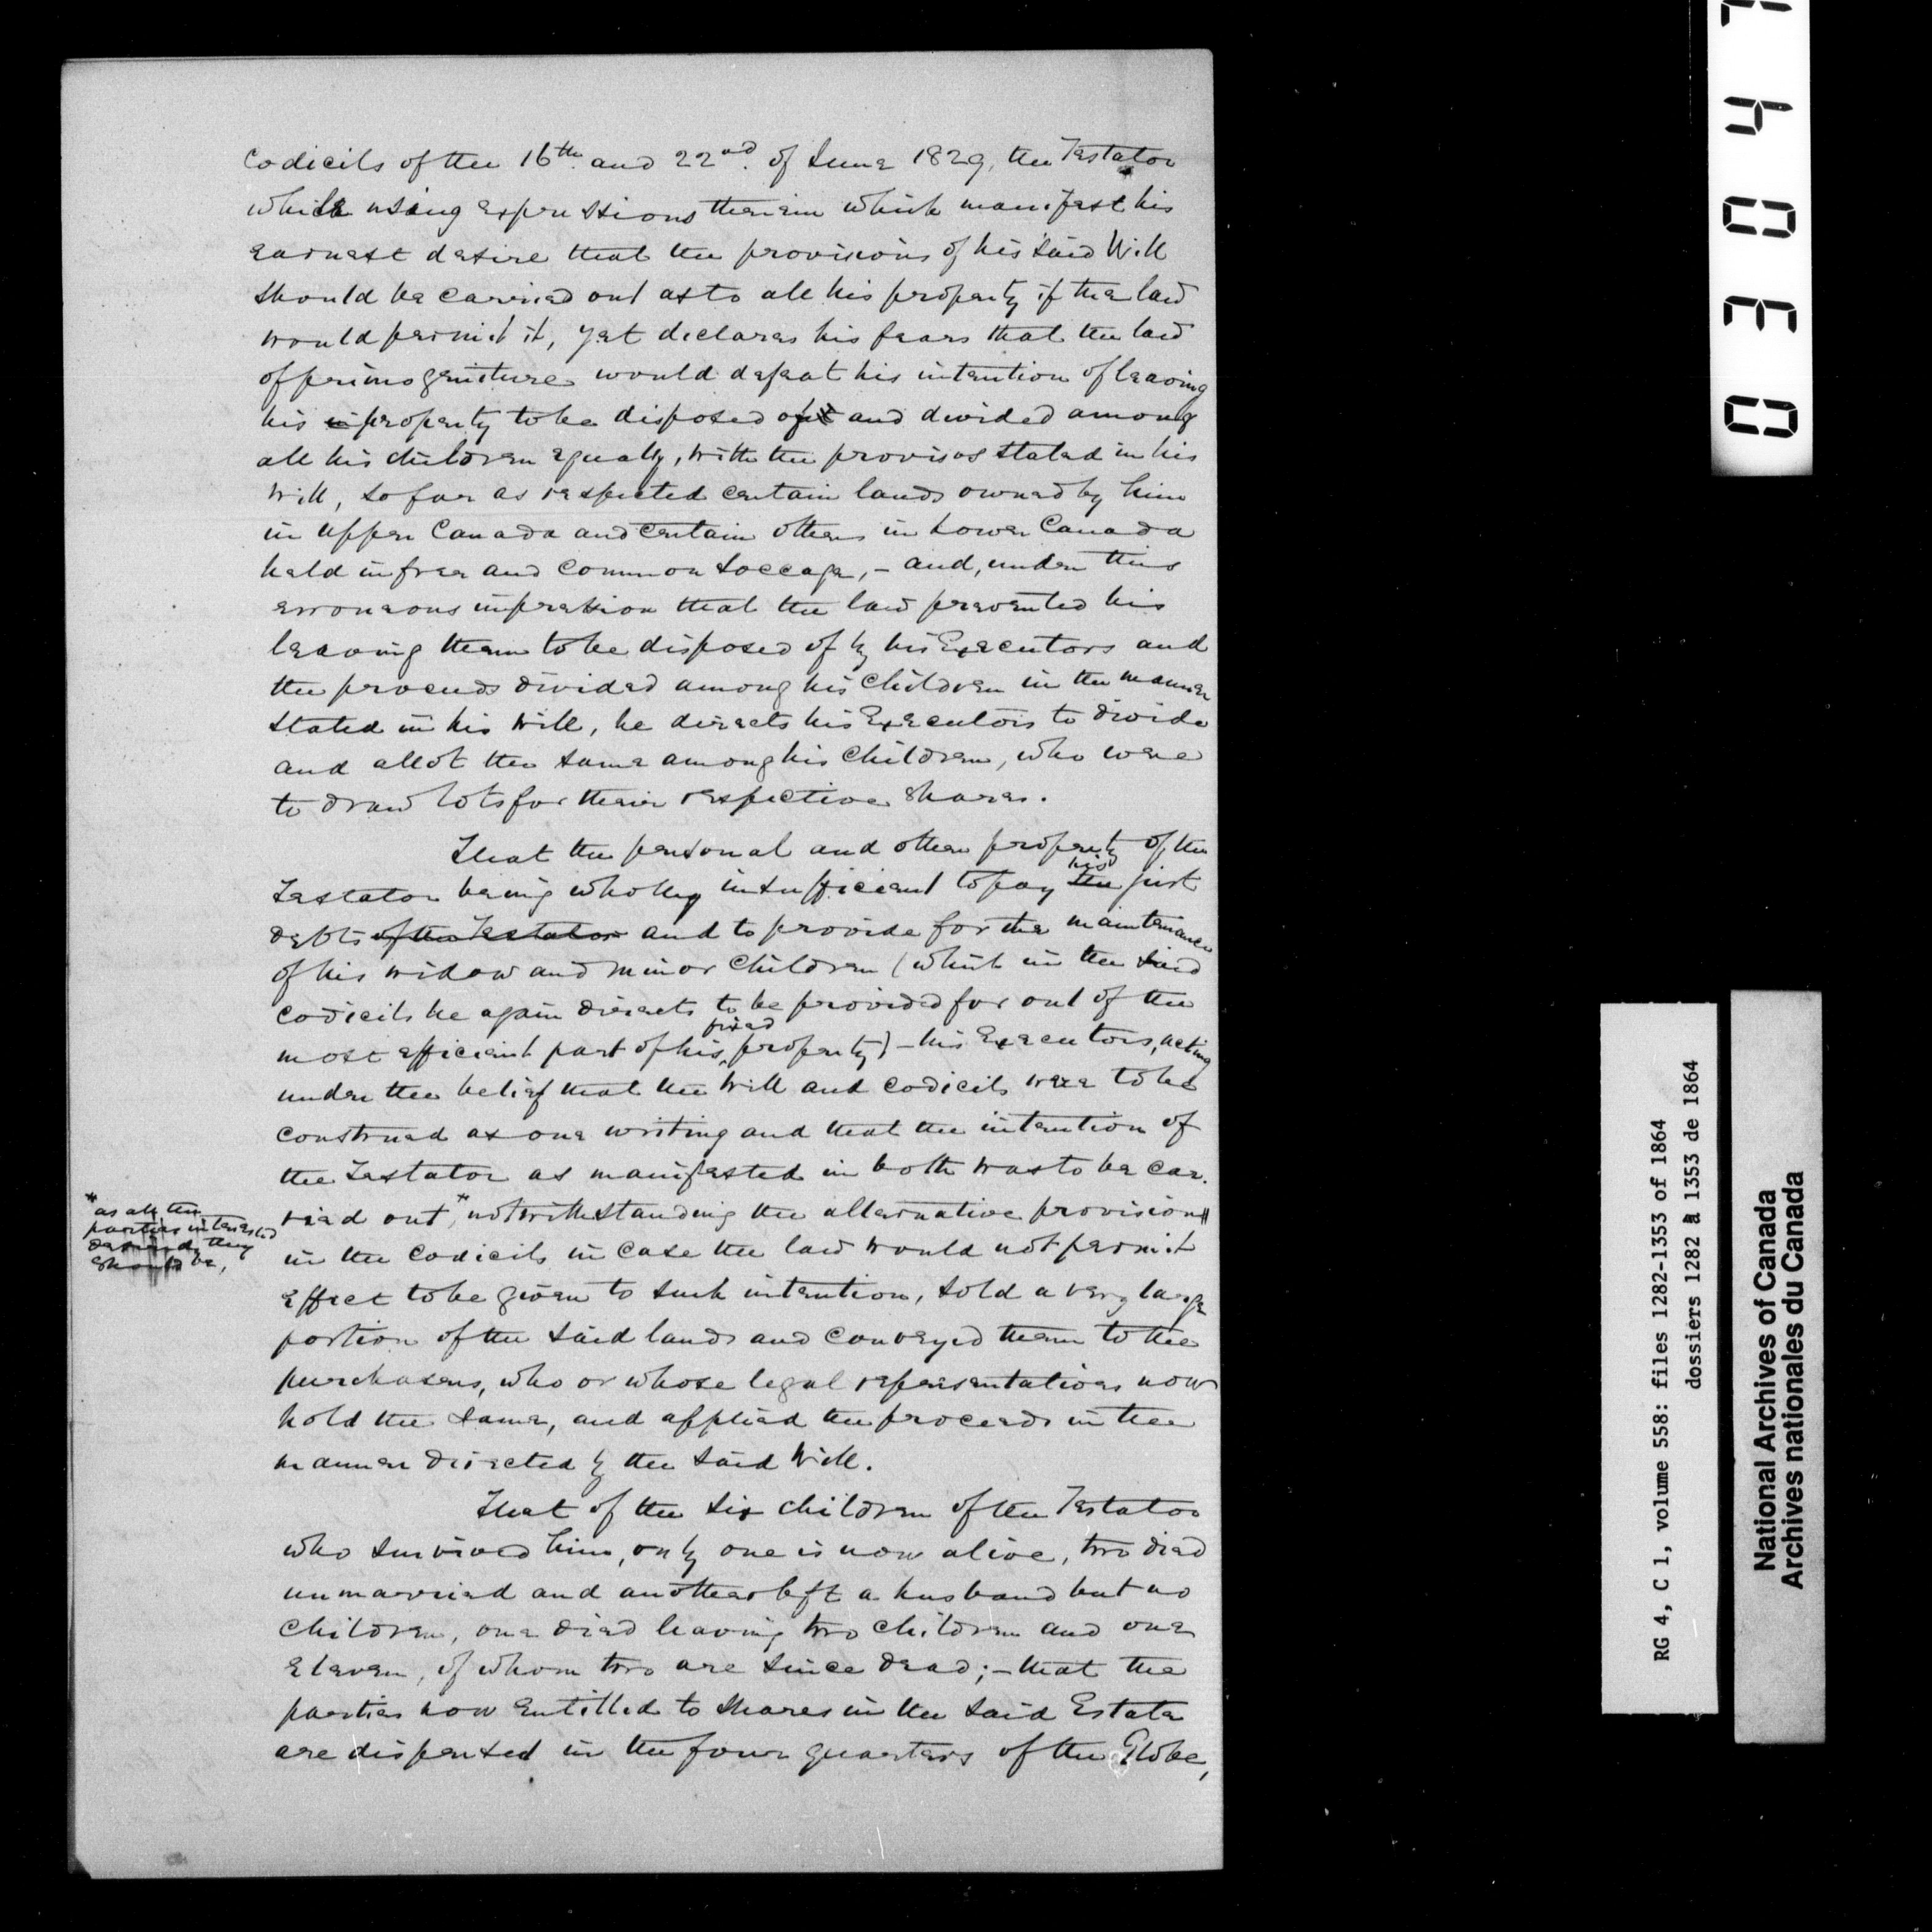 codicils of the 16th. and 22nd. of June 1829, the Testator
while using expressions therein which manifest his
earnest desire that the provisions of his said Will
should be carried out as to all his property if the law
would permit it, yet declares his fears that the law
of primogeniture would defeat his intention of leaving
his property to be disposed of and divided among
all his children equally, with the provisos stated in his
Will, so far as respected certain lands owned by him
in Upper Canada and certain others in Lower Canada
held in free and common soccage,- and, under this
erroneous impression that the law prevented his
leaving them to be disposed of by his Executors and
the proceeds divided among his children in the manner
stated in his Will, he directs his Executors to divide
and allot the same among his children, who were
to draw lots for their respective shares.
That the personal and other property of the
Testator being wholly insufficient to pay the his just
debts of the Testator and to provide for the maintenance
of his widow and minor children (which in the said
codicils he again directs to be provided for out of the
most efficient part of his fixed property) - his Executors, acting
under the belief that the Will and codicils were to be
construed as one writing and that the intention of
the Testator as manifested in both was to be car-
ried out,* notwithstanding the alternative provision
*as all the
parties interested
desired they
should be,
in the codicils in case the law would not permit
effect to be given to such intention, sold a very large
portion of the said lands and conveyed them to the
purchasers, who or whose legal representatives now
hold the same, and applied the proceeds in the
manner directed by the said Will.
That of the six children of the Testator
who survived him, only one is now alive, two died
unmarried and another left a husband but no
children, one died leaving two children and one
eleven, of whom two are since dead;- that the
parties now entitled to shares in the said Estate
are dispersed in the four quarters of the Globe,
RG 4, C 1, volume 558: files 1282-1353 of 1864
dossiers 1282 à 1353 de 1864
National Archives of Canada
Archives nationales du Canada